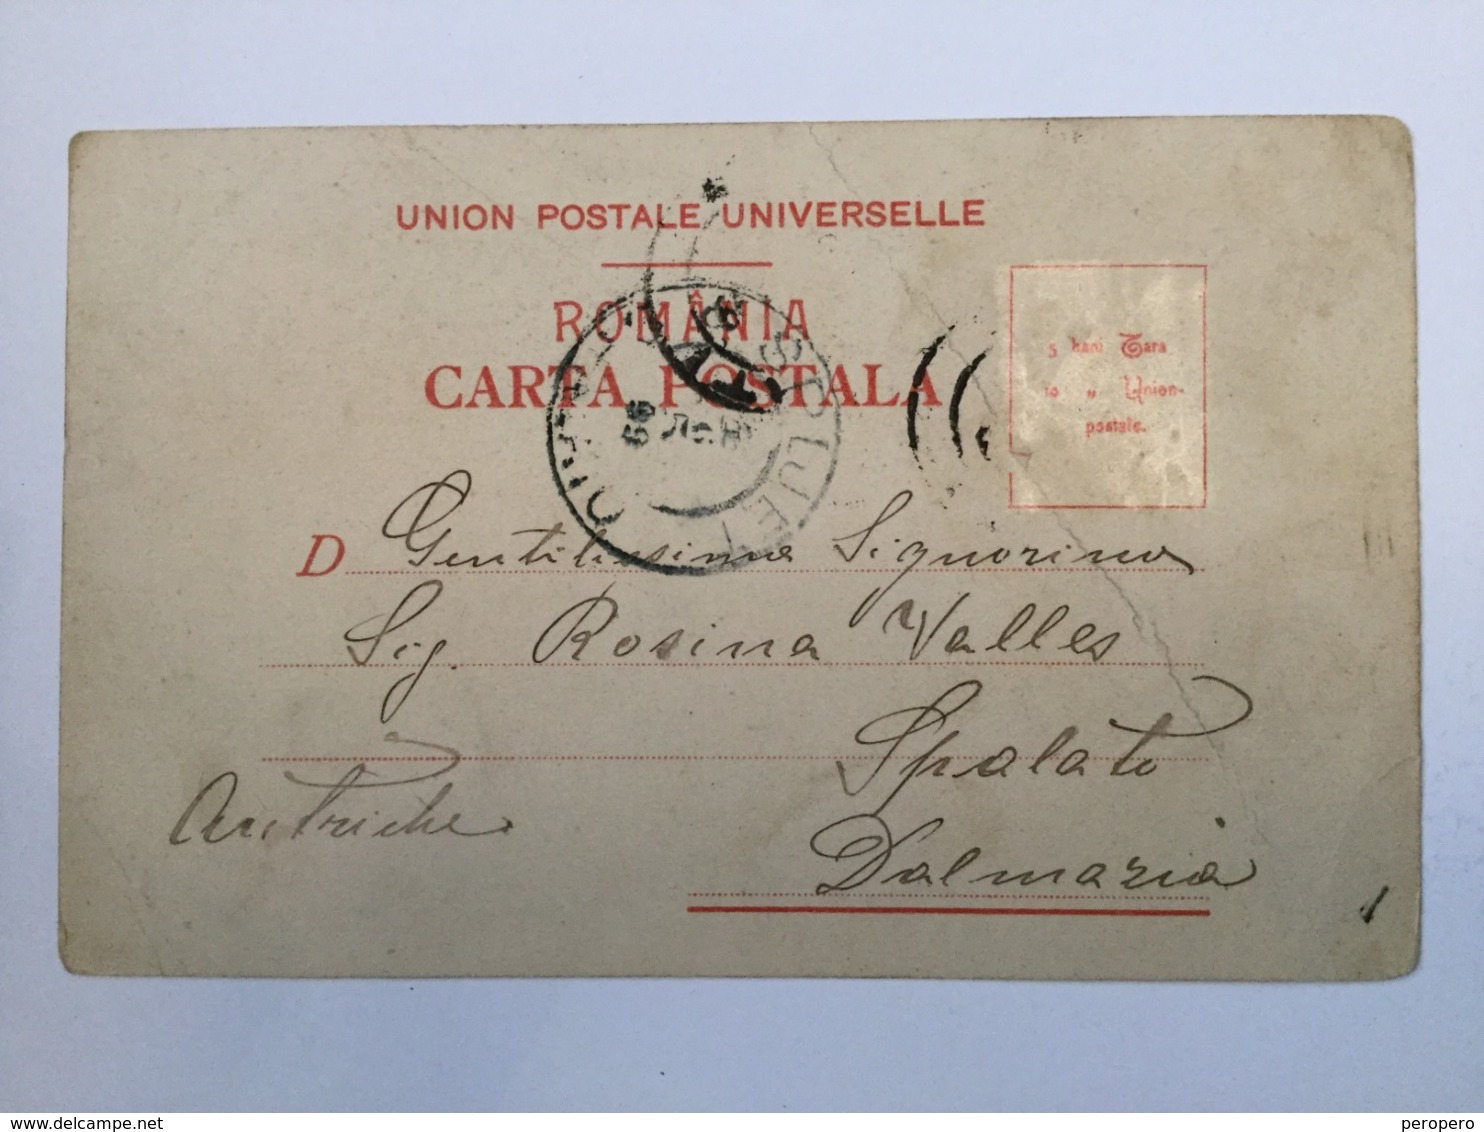 UNION POSTALE UNIVERSELLE
ROMÂNIA
CARTA POSTALA
5 bani Tara
10 " Union-
postale.
SPLJET
99
D Gentilissima Signorina
Sig. Rosina Valles
Spalato
Autriche
Dalmazia
www.delcampe.net
peropero